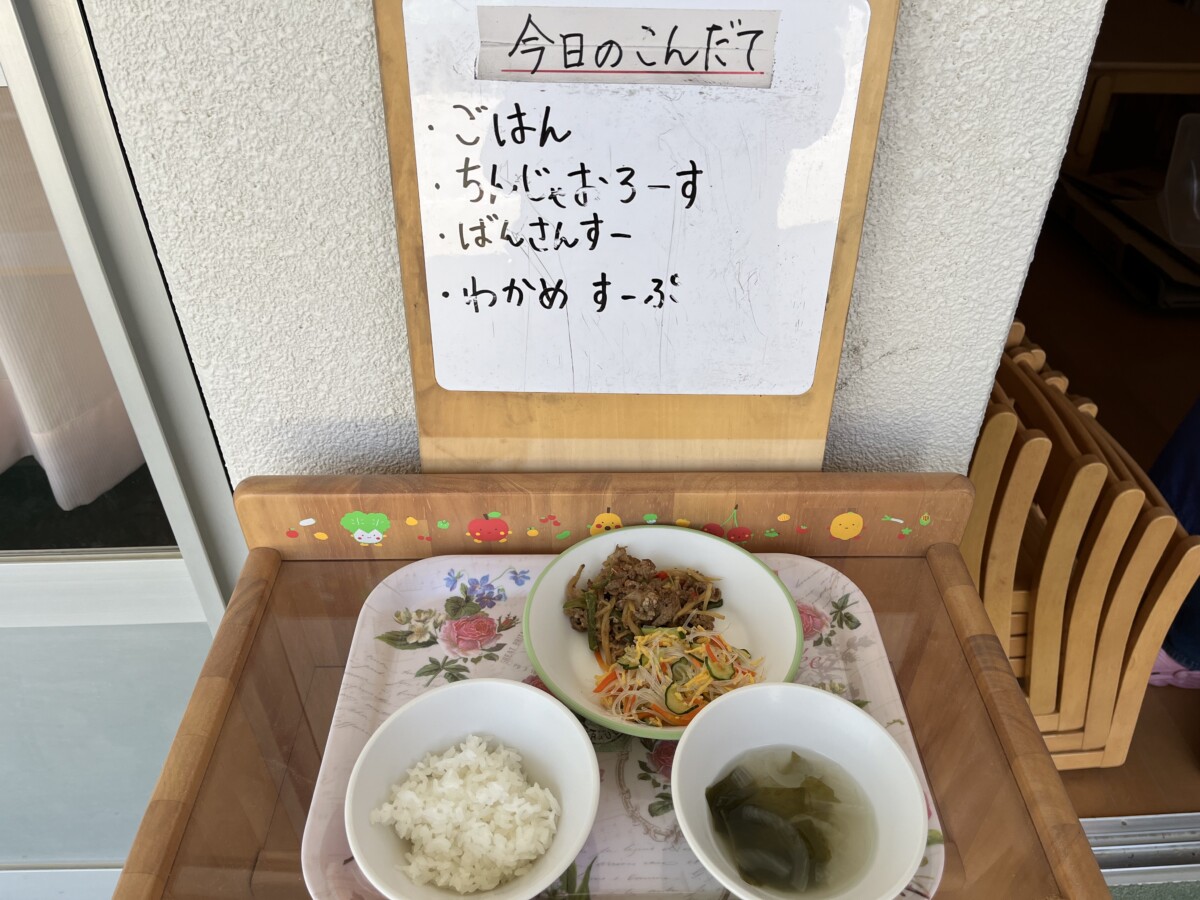 今日のこんだて
・ごはん
・ちんじゃおろーす
・ばんさんすー
・わかめ すーぷ